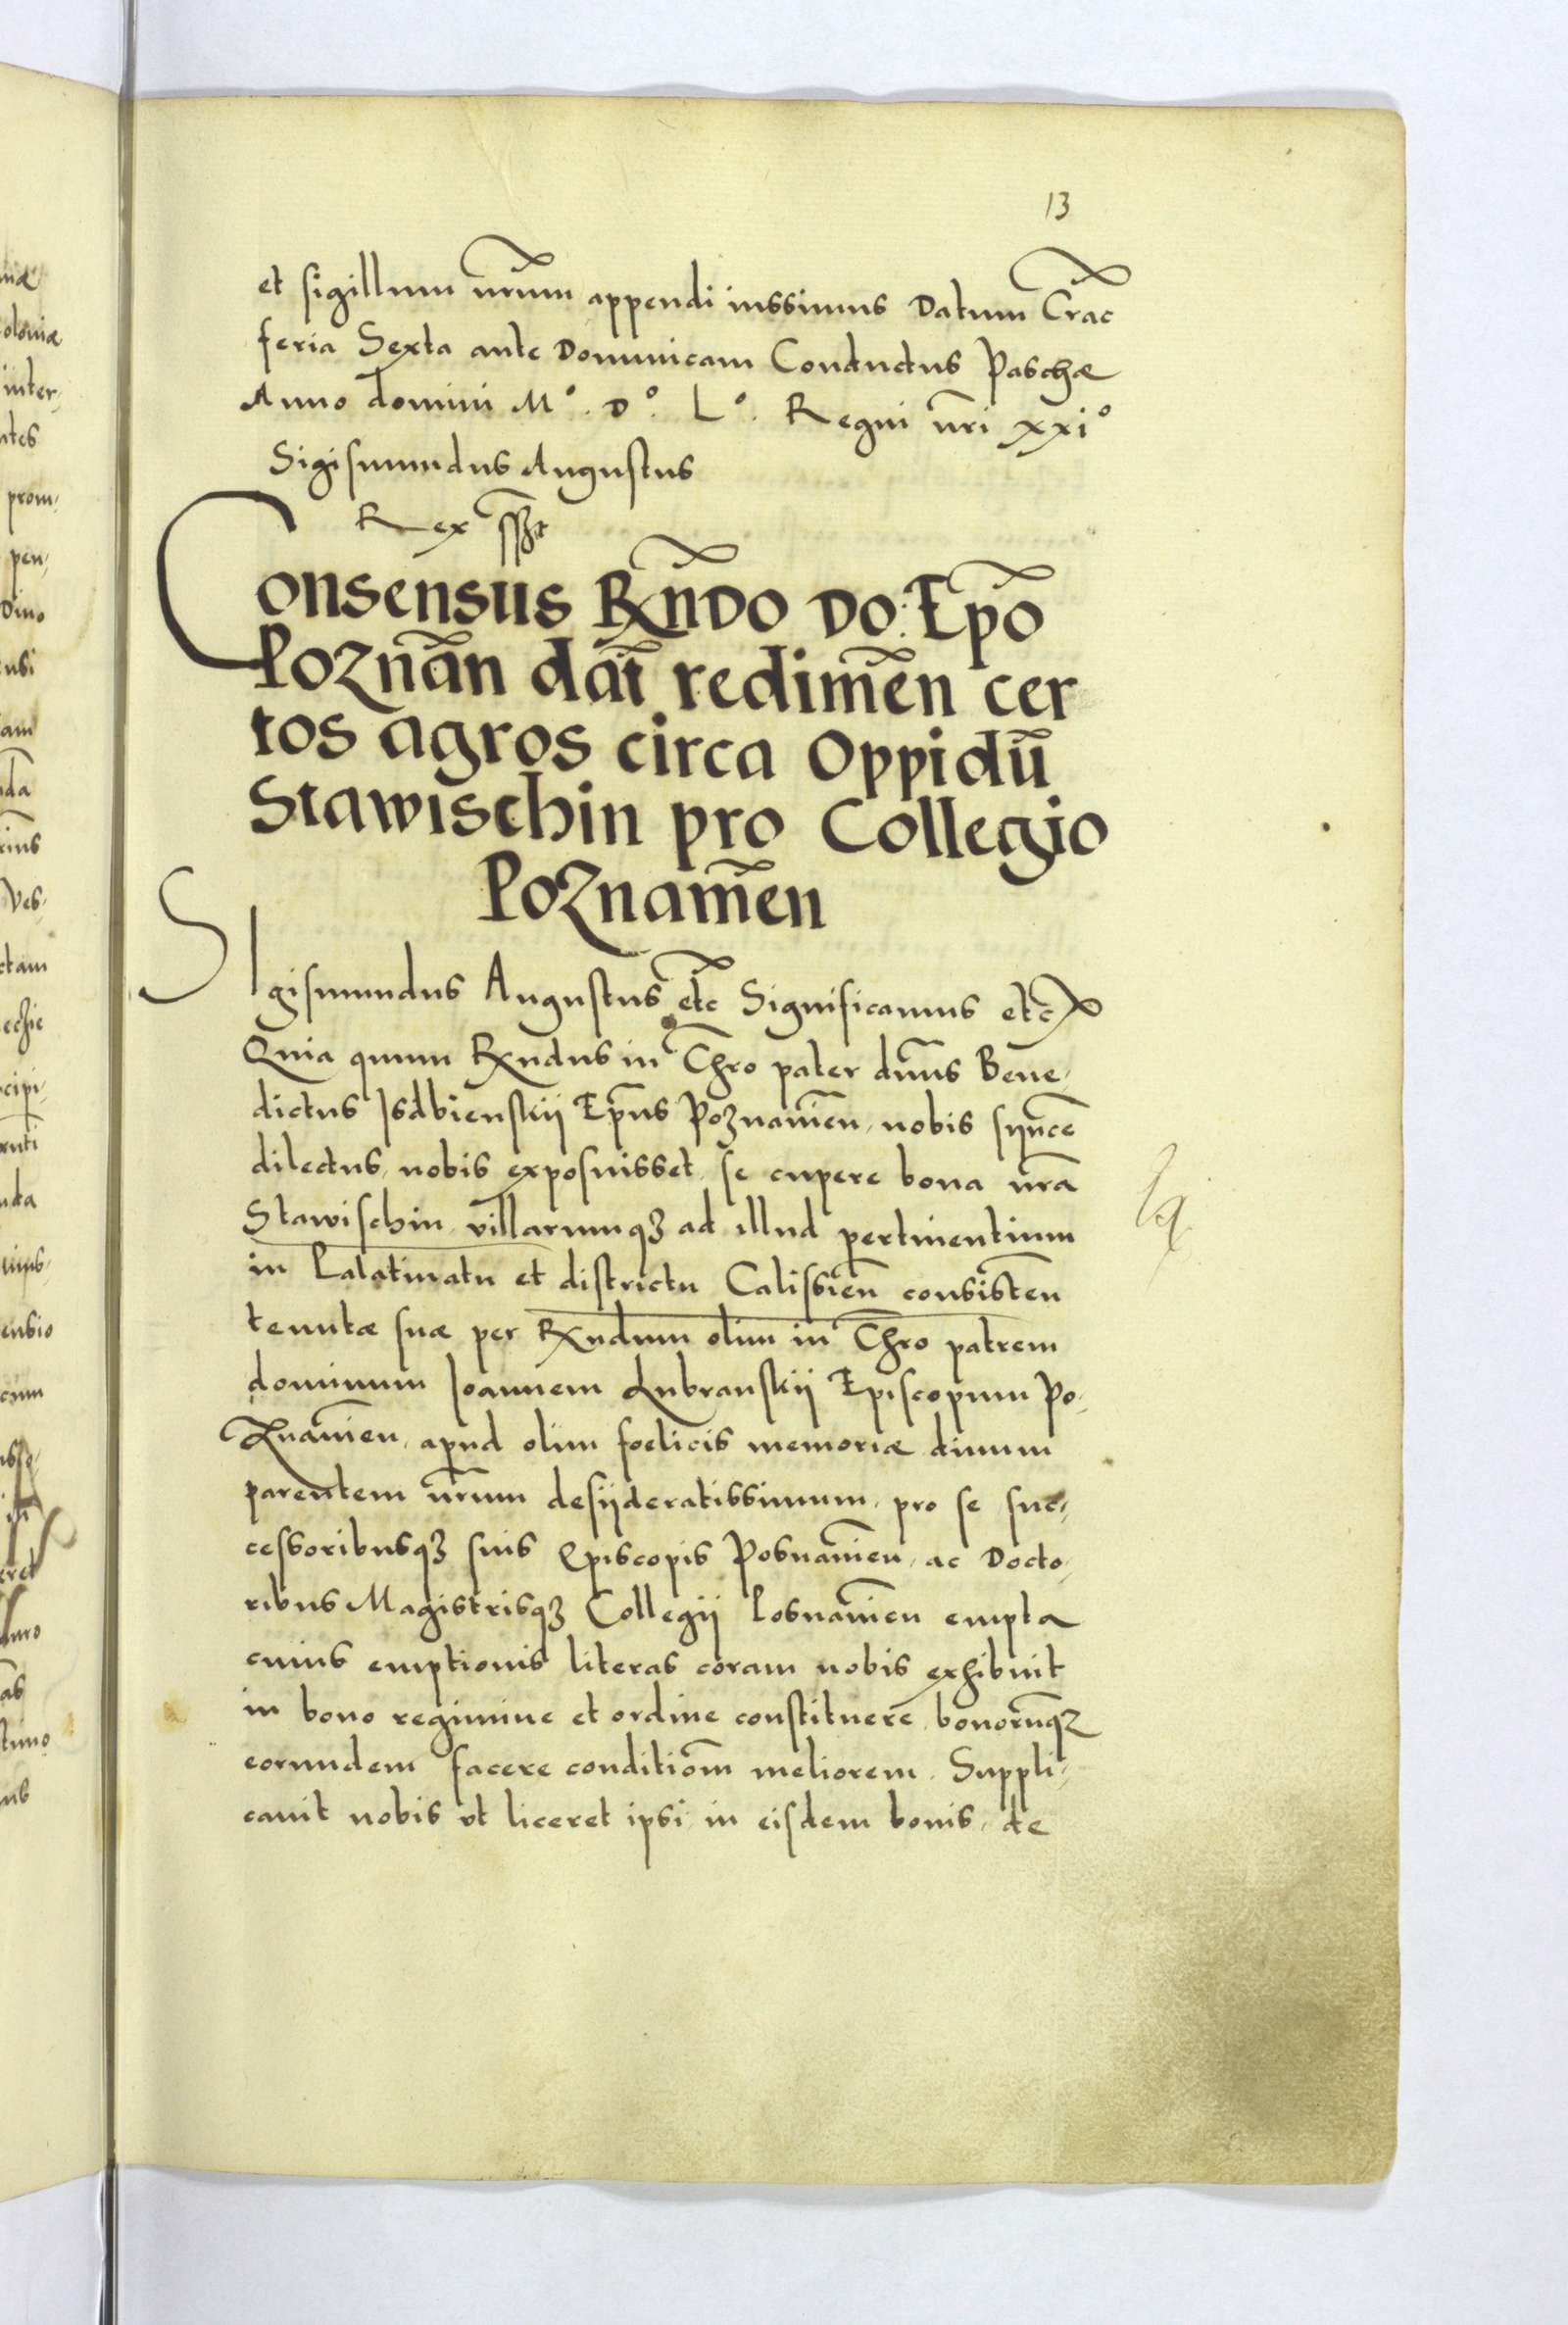 13
et sigillum nr̃um appendi iussimus Datum Crac̃
feria Sexta ante Dominicam Conductus Paschæ
Anno domini M°. D°. L°. Regni nr̃i xxi°
Sigismundus Augustus
Rex sszt
Consensus Rxñdo Do: Ep̃o
Poznãn dat̃ redimẽn cer
tos agros circa Oppidũ
Stawischin pro Collegio
Poznamẽn
SIgismundus Augustus etc̃ Significamus etc
Quia quum Rxndus in Chr̃o pater dñus Bene,
dictus Isdbienskij Ep̃us Poznanien̄, nobis sijnce
dilectus, nobis exposuisset, se cupere bona nr̃a
Stawischin, villarumqȝ ad illud pertinentium
in Palatinatu et districtu Calissien̄ consisten̄
tenutæ suæ per Rxndum olim in Chr̃o patrem
dominum Joannem Lubranskij Episcopum Po,
Znanien̄, apud olim foelicis memoriæ diuum
parentem nr̃um desijderatissimum, pro se suc,
cessoribusqȝ suis Episcopis Posnanien̄, ac Docto,
ribus Magistrisqȝ Collegij Posnanien̄ empta
cuius emptionis literas coram nobis exhibuit
in bono regimine et ordine constituere, bonorũqȝ
eorundem facere conditiom̃ meliorem. Suppli,
cauit nobis vt liceret ipsi in eisdem bonis, de